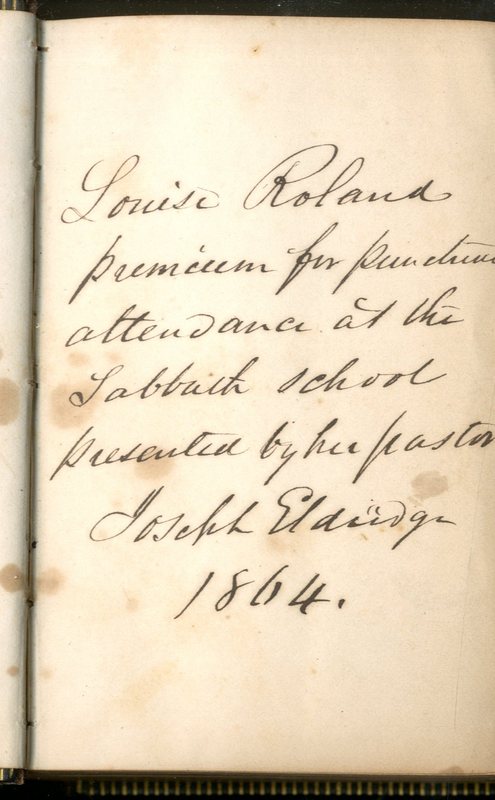 Louise Roland
premium for punctual
attendance at the
Sabbath school
presented by her pastor
Joseph Eldridge
1864.